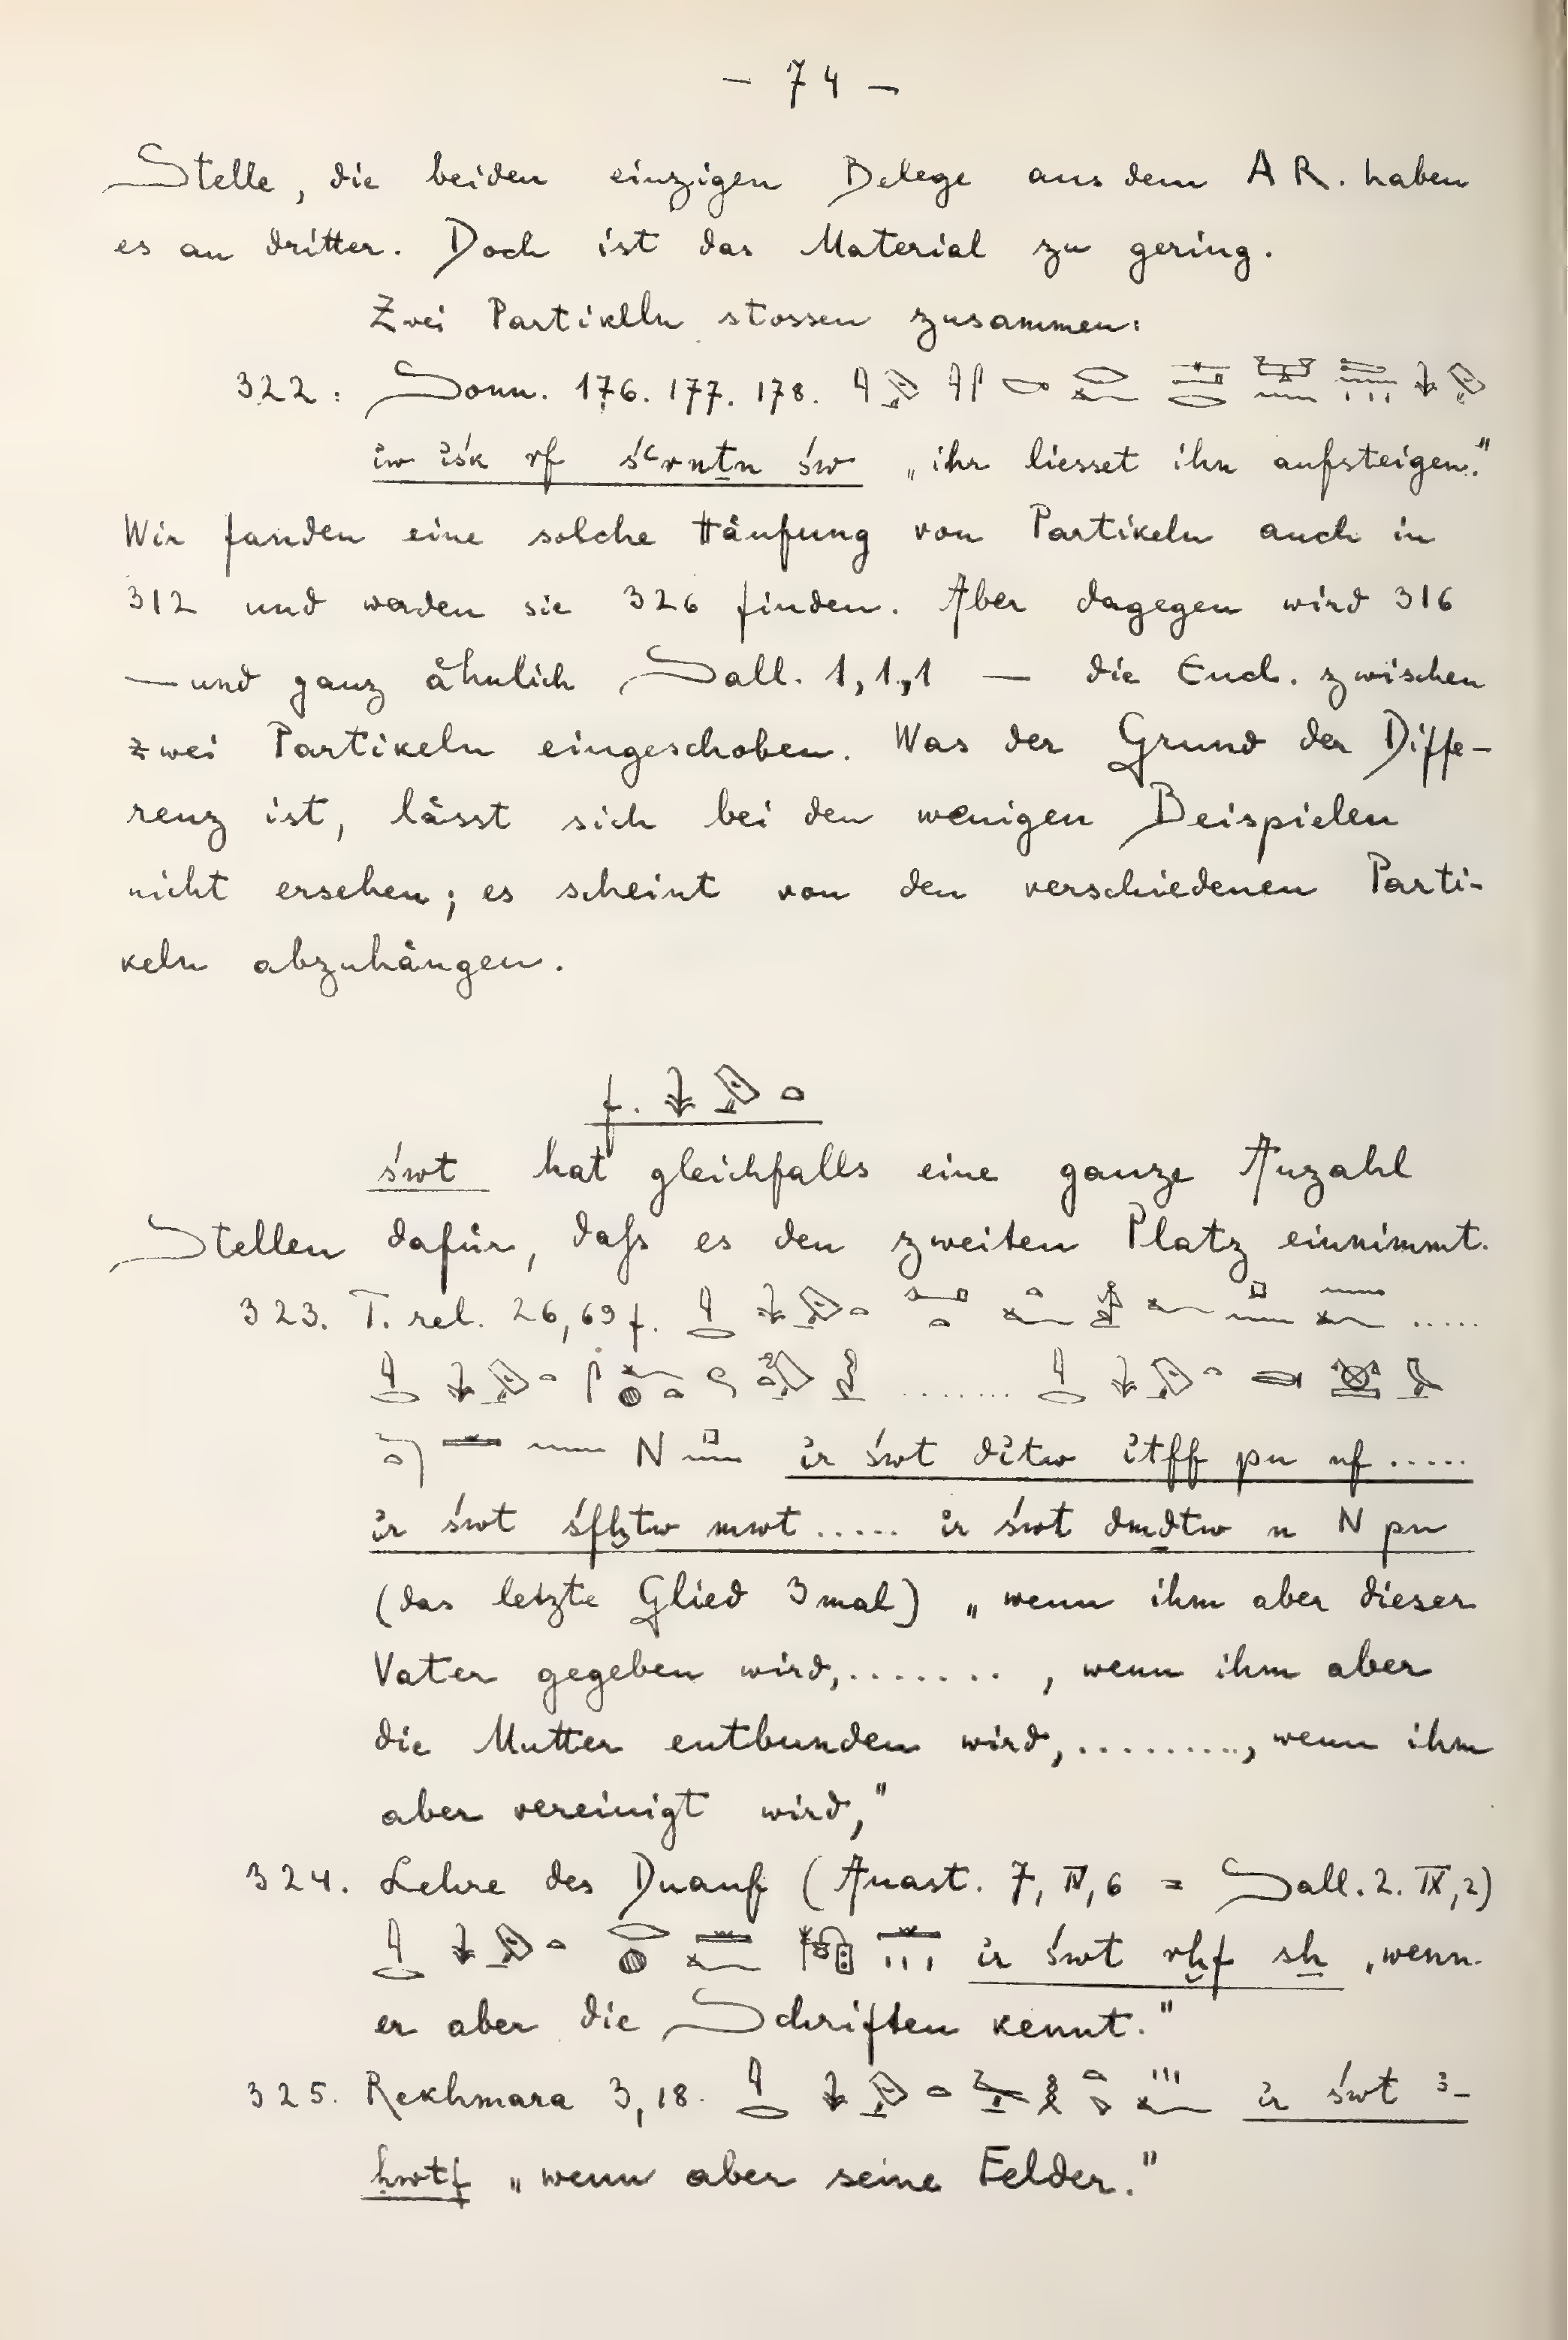 — 74 —
Stelle, die beiden einzigen Belege aus dem AR. haben
es an dritter. Doch ist das Material zu gering.
Zwei Partikeln stossen zusammen:
322: Sonn. 176. 177. 178.
ἰw ἰśk rf śꜥrntn św „ihr liesset ihn aufsteigen."
Wir fanden eine solche Häufung von Partikeln auch in
312 und werden sie 326 finden. Aber dagegen wird 316
— und ganz ähnlich Sall. 1,1,1 — die Encl. zwischen
zwei Partikeln eingeschoben. Was der Grund der Diffe-
renz ist, lässt sich bei den wenigen Beispielen
nicht ersehen; es scheint von den verschiedenen Parti-
keln abzuhängen.
f. 𓇓𓅱𓏏
śwt hat gleichfalls eine ganze Anzahl
Stellen dafür, daſs es den zweiten Platz einnimmt.
323. T. rel. 26,69 f.
N ἰr śwt dἰtw ἰtff pn nf .....
ἰr śwt śfḫtw mwt ..... ἰr śwt dmḏtw n N pn
(das letzte Glied 3 mal) „wenn ihm aber dieser
Vater gegeben wird, ........, wenn ihm aber
die Mutter entbunden wird, ........., wenn ihm
aber vereinigt wird,"
324. Lehre des Duauf (Anast. 7, IV, 6 = Sall. 2. IX, 2)
ἰr śwt rḫf sẖ „wenn
er aber die Schriften kennt."
325. Rekhmara 3,18. ἰr śwt ꜣ-
ḥwtf „wenn aber seine Felder."